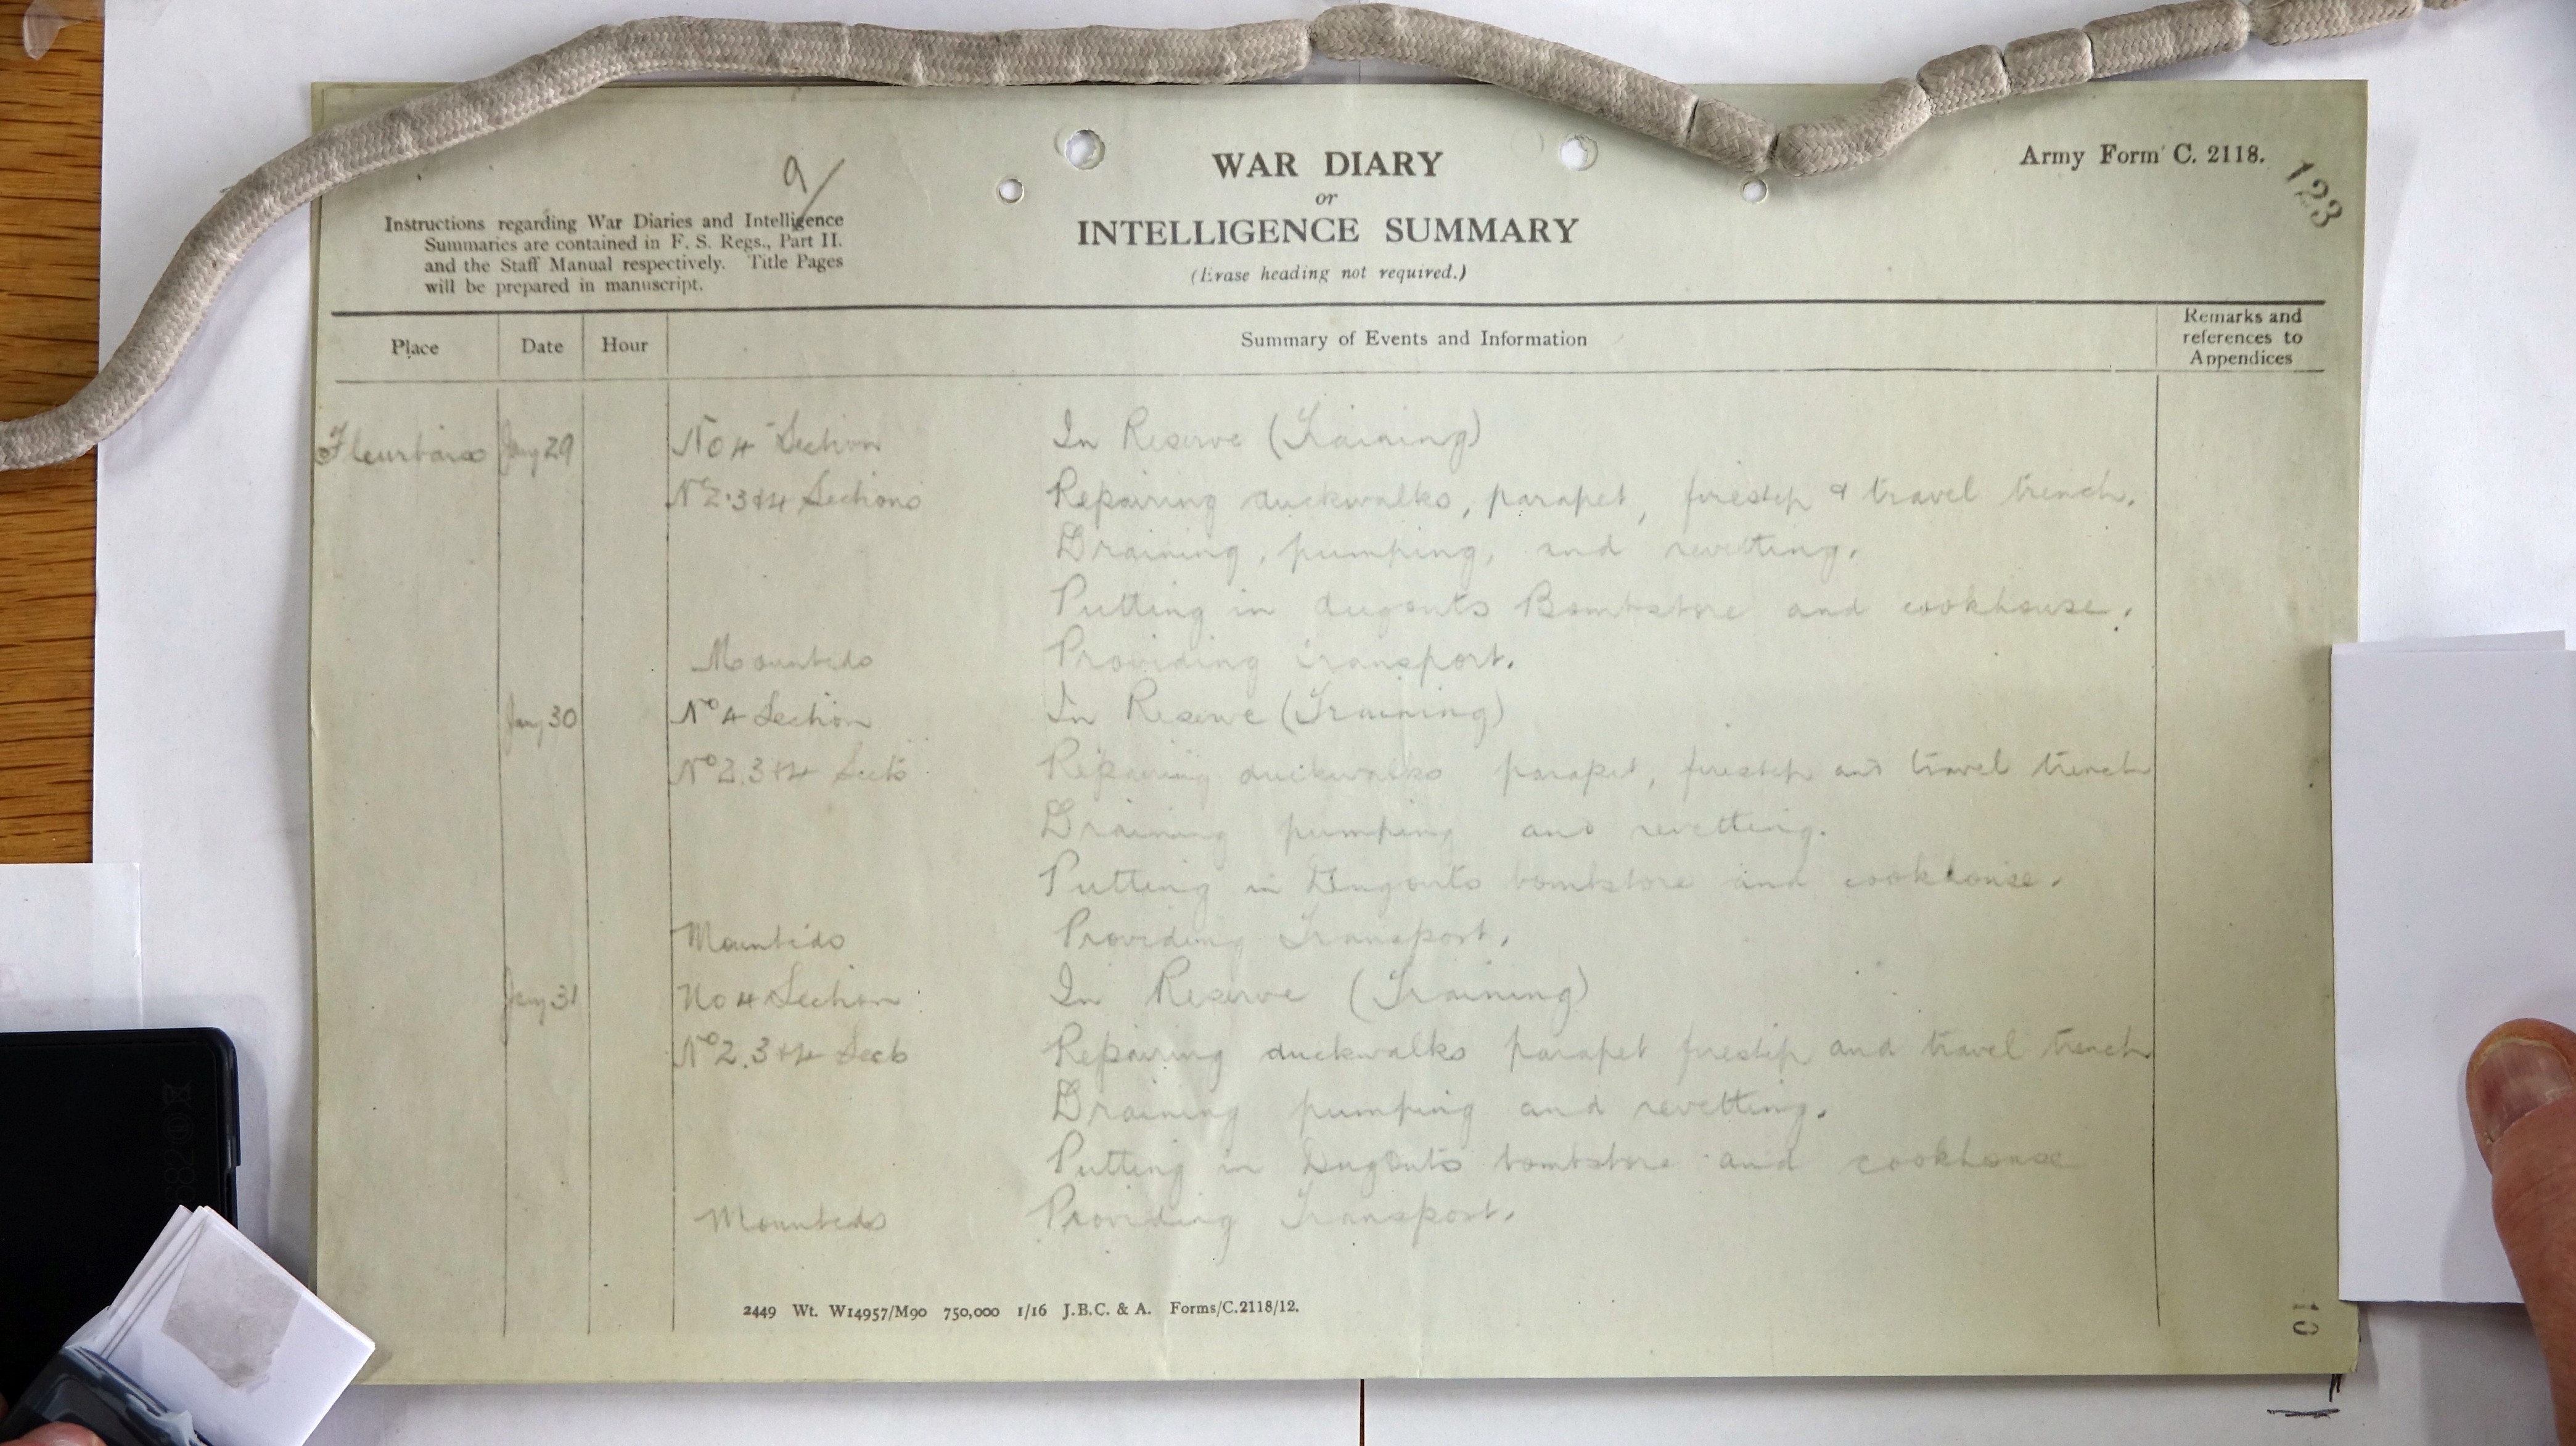 9/
WAR DIARY
or
INTELLIGENCE SUMMARY
(Erase heading not required.)
Army Form C. 2118.
123
Instructions regarding War Diaries and Intelligence
Summaries are contained in F. S. Regs., Part II.
and the Staff Manual respectively. Title Pages
will be prepared in manuscript.
Place Date Hour Summary of Events and Information Remarks and references to Appendices
Fleurbaix Jany 29 No 4 Section In Reserve (Training)
No 2.3&4 Sections Repairing duckwalks, parapet, firestep & travel trench.
Draining, pumping, and revetting.
Putting in dugouts Bombstore and cookhouse.
Mounteds Providing transport.
Jany 30 No 4 Section In Reserve (Training)
No 2.3+4 Sects Repairing duckwalks parapet, firestep and travel trench
Draining pumping and revetting.
Putting in Dugouts bombstore and cookhouse.
Mounteds Providing Transport.
Jany 31 No 4 Section In Reserve (Training)
No 2.3+4 Sects Repairing duckwalks parapet firestep and travel trench
Draining pumping and revetting.
Putting in Dugouts bombstore and cookhouse
Mounteds Providing Transport.
2449 Wt. W14957/M90 750,000 1/16 J.B.C. & A. Forms/C.2118/12.
10